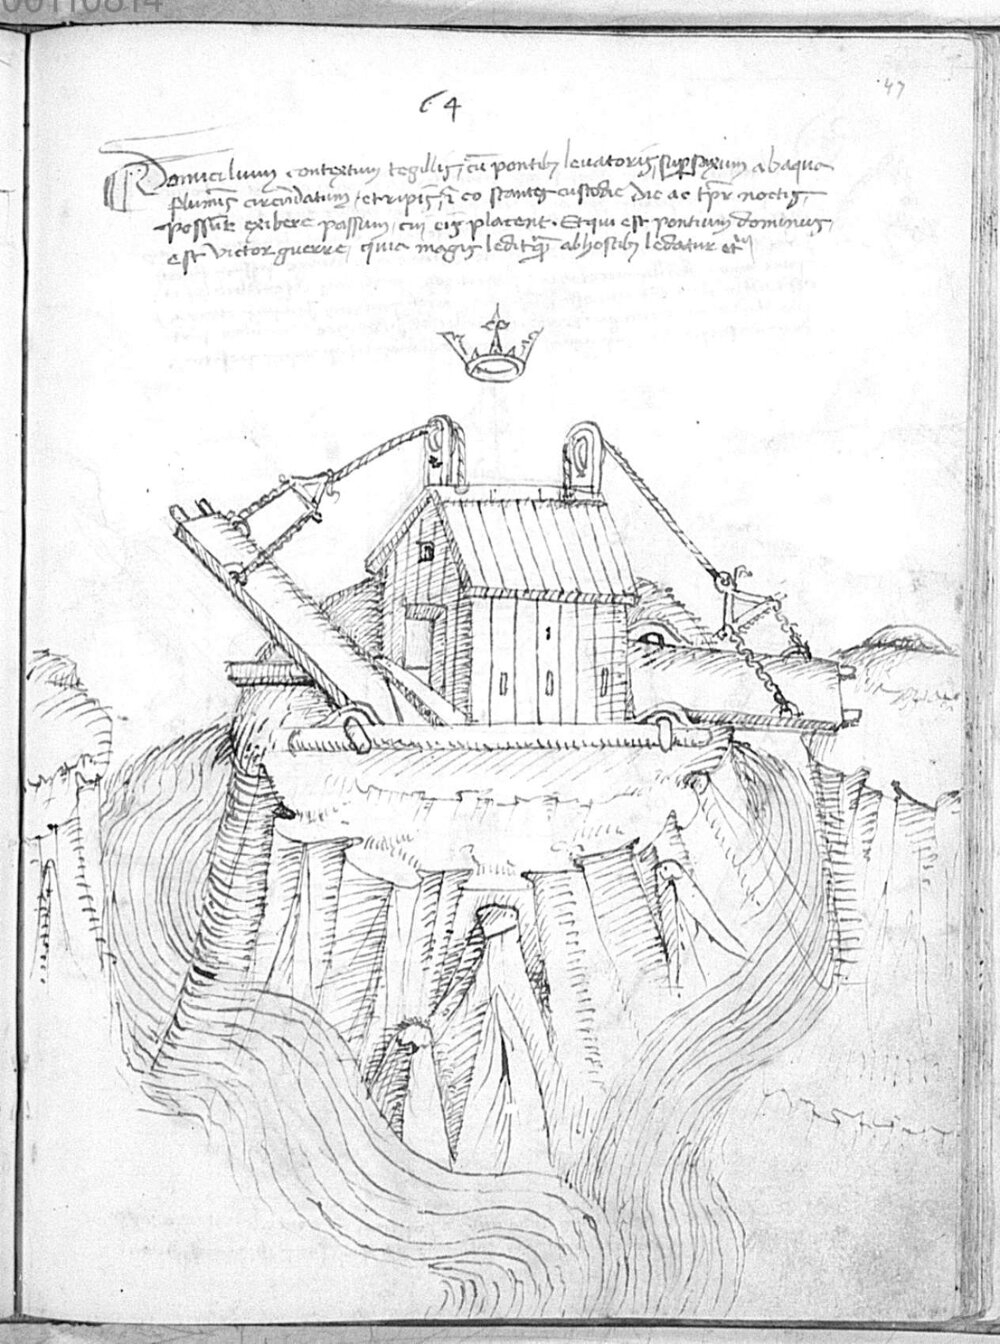 00110814
47
64
Domicilium contextum tegillis, cū pontib; levatoriis, supsaxum abaqua
flumīs circūdatum, et ripis, ī eo stantes custodie die ac tp̄r noctis,
possūt exibere passum, cui eis placent. Et qui est pontium dominus,
est victor guerre, quia magis ledit q̄ʒ ab hostib; ledatur etc̄